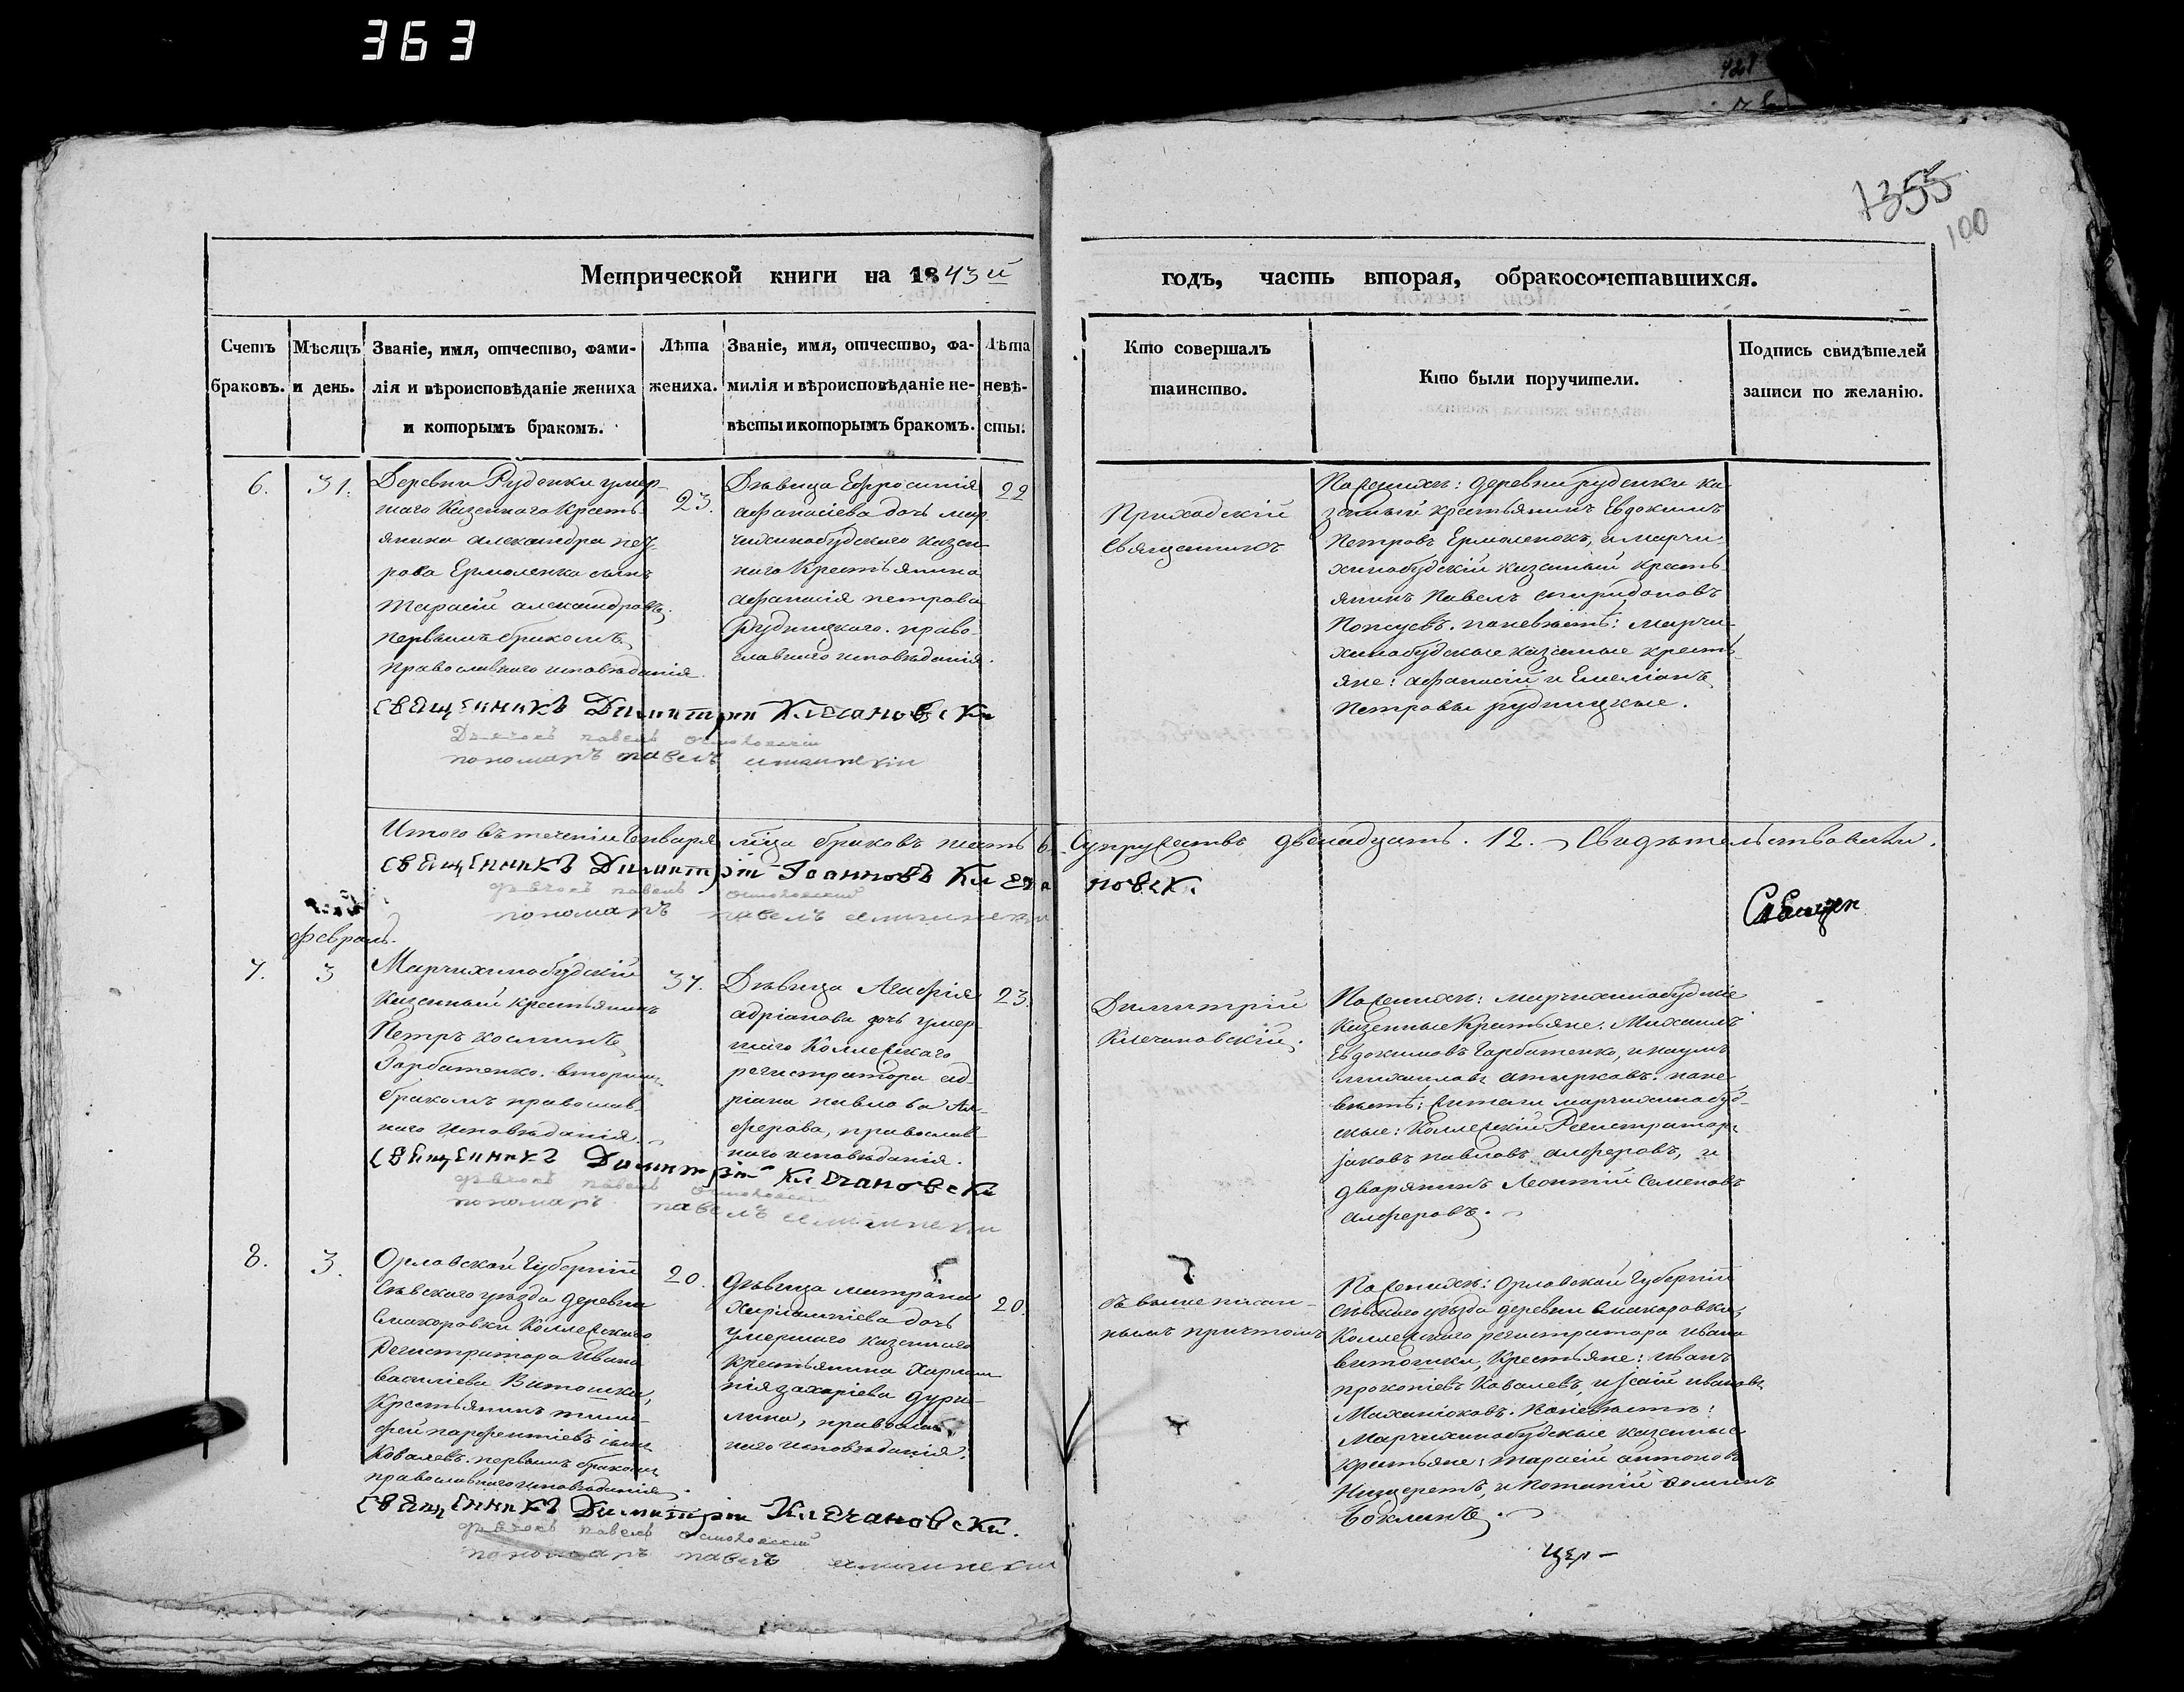 363
421
1355
100
Метрической книги на 1843й
годъ, часть вторая, обракосочетавшихся.
Счетъ браковъ.
Мѣсяцъ и день.
Званіе, имя, отчество, фами-
лія и вѣроисповѣданіе жениха
и которымъ бракомъ.
Лѣта
жениха.
Званіе, имя, отчество, фа-
милія и вѣроисповѣданіе не-
вѣсты и которымъ бракомъ.
Лѣта
невѣ-
сты.
Кто совершалъ
таинство.
Кто были поручители.
Подпись свидѣтелей
записи по желанію.
6.
31.
Деревни Руденки умер-
шаго Казеннаго Кресть-
янина александра пет-
рова Ермоленка сынъ
Тарасій александровъ,
первымъ бракомъ,
православнаго исповѣданія.
23.
Дѣвица Ефросинія
афанасіева дочь мар-
чихинобудскаго казен-
наго Крестьянина
афанасія петрова
Рудницкаго. право-
славнаго исповѣданія.
22
Приходскій
Священникъ
По женихѣ: деревни руденки ка-
зенный крестьянинъ Евдокимъ
Петровъ Ермоленокъ, и марчи-
хинобудскій казенный кресть-
янинъ Павелъ спиридоновъ
поневѣстѣ: Марчи-
хинобудские казенные кресть-
яне: афанасій и Емеліанъ
Петровы рудницкые.
священникъ Димитрій Клечановски
Дьячокъ павелъ
пономаръ павелъ
Итого въ теченіи Генваря мѣца браковъ шесть 6. Супружествъ двенадцать. 12. Свидѣтельствовали.
священникъ Димитрій Іоанновъ Клечановски
дьячокъ павелъ
пономаръ павелъ
Священ
февраль.
7.
3
Марчихинобудскій
казенный крестьянинъ
Петръ косминъ
Горбатенко. вторымъ
бракомъ православ-
наго исповѣданія.
37.
Дѣвица Агафія
адріанова дочь умер-
шаго Коллежскаго
регистратора ад-
ріана павлова Ал-
ферова, православ-
наго исповѣданія.
23.
Димитрій
Клечановскій.
По женихѣ: марчихинобудскіе
казенные Крестьяне: Михаилъ
Евдокимовъ Горбатенко, и наумъ
михаиловъ поне-
вѣстѣ: жители марчихинобуд-
ские: Коллежскій Регистраторъ
іаковъ павловъ алферовъ, и
дворянинъ Леонтій Семеновъ
алферовъ.
священникъ Димитрій Клечановски
дьячокъ павелъ
пономаръ павелъ
8.
3.
Орловской Губерніи
Сѣвскаго уѣзда деревни
Смахоровки Коллежскаго
Регистратора Ивана
василіева Витошки,
Крестьянинъ тимо-
фей парфентіевъ сынъ
Ковалевъ. первымъ бракомъ
православнаго исповѣданія.
20.
дѣвица
Харлампіева дочь
умершаго казеннаго
крестьянина Харлам-
пія захаріева
православ-
наго исповѣданія.
20.
съ вышеписан-
нымъ причтомъ
По женихѣ: Орловской Губерніи
Сѣвскаго уѣзда деревни Смахоровки,
Коллежскаго регистратора Ивана
витошки, Крестьяне: Иванъ
прокопіевъ Ковалевъ, и Ивановъ
Поневѣстѣ:
Марчихинобудские казенные
крестьяне: Тарасій антоновъ
и Потапій
священникъ Димитрій Клечановски.
дьячокъ павелъ
пономаръ павелъ
Цер-